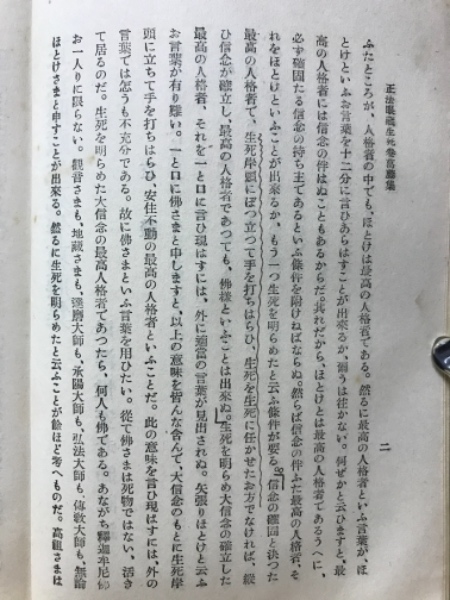 正法眼蔵生死巻葛藤集
二
ふたところが、人格者の中でも、ほとけは最高の人格者である。然るに最高の人格者といふ言葉が、ほ
とけといふお言葉を十二分に言ひあらはすことが出来るか、爾うは往かない。何ぜかと云ひますと、最
高の人格者には信念の伴はぬこともあるからだ。其れだから、ほとけとは最高の人格者であるうへに、
必ず確固たる信念の持ち主であるといふ條件を附けねばならぬ。然らば信念の伴ふた最高の人格者、そ
れをほとけといふことが出来るか、もう一つ生死を明らめたと云ふ條件が要る。信念の確固と決つた
最高の人格者で、生死岸頭にぽつ立つて手を打ちはらひ、生死を生死に任かせたお方でなければ、縦
ひ信念が確立し、最高の人格者であつても、佛様といふことは出来ぬ。生死を明らめ大信念の確立した
最高の人格者、それを一と口に言ひ現はすには、外に適當の言葉が見出されぬ。矢張りほとけと云ふ
お言葉が有り難い。一と口に佛さまと申しますと、以上の意味を皆んな含んで、大信念のもとに生死岸
頭に立ちて手を打ちはらひ、安住不動の最高の人格者といふことだ。此の意味を言ひ現はすには、外の
言葉では怎うも不充分である。故に佛さまといふ言葉を用ひたい。從て佛さまは死物ではない、活き
て居るのだ。生死を明らめた大信念の最高人格者であつたら、何人も佛である。あながち釋迦牟尼佛
お一人りに限らない。觀音さまも、地蔵さまも、達磨大師も、承陽大師も、弘法大師も、傳教大師も、無論
ほとけさまと申すことが出来る。然るに生死を明らめたと云ふことが餘ほど考へものだ。高祖さまは